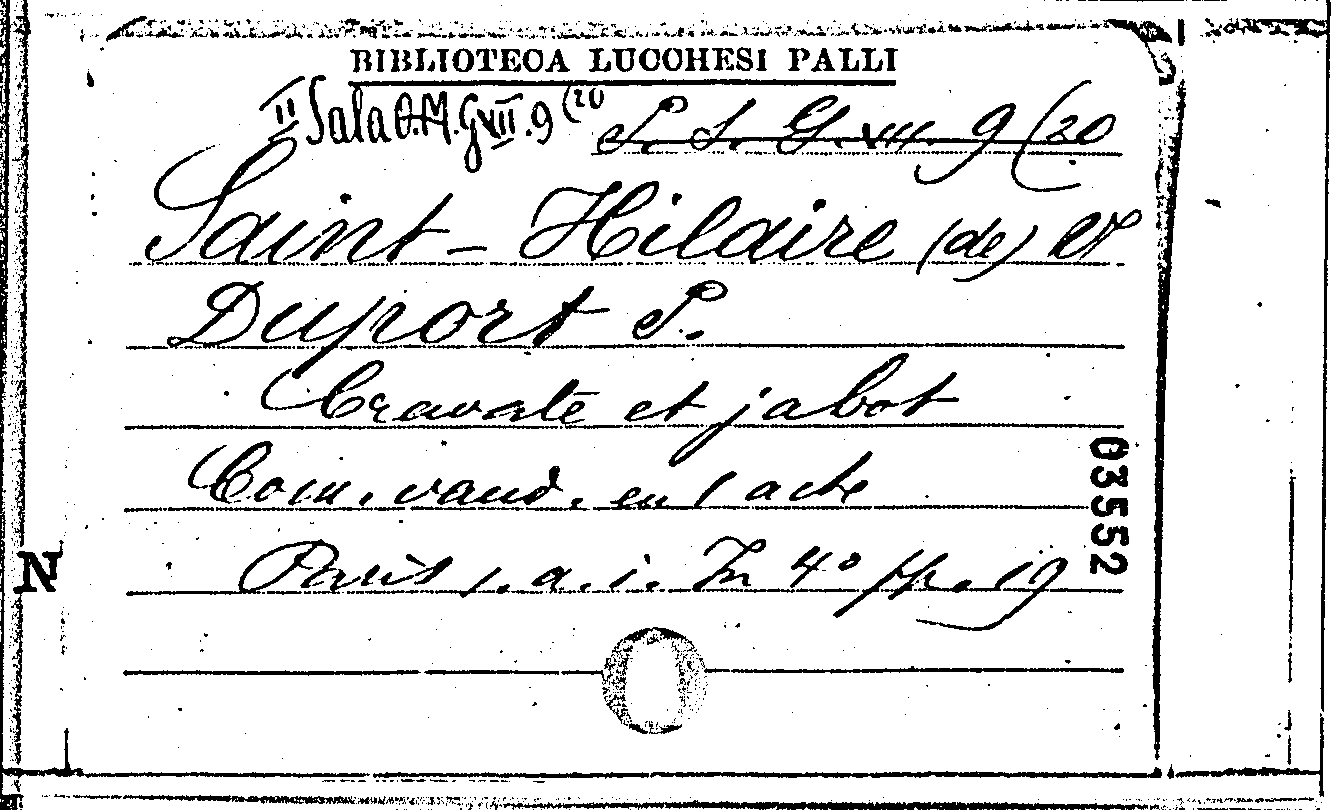 BIBLIOTECA LUCCHESI PALLI
II Sala O.M. G VII. 9 (20
P. S. G. VIII. 9 (20
Saint-Hilaire (de) V
Duport P.
Cravate et jabot
Com. vaud. en 1 acte
Paris s. a. i. In 4° pp. 19
03552
N